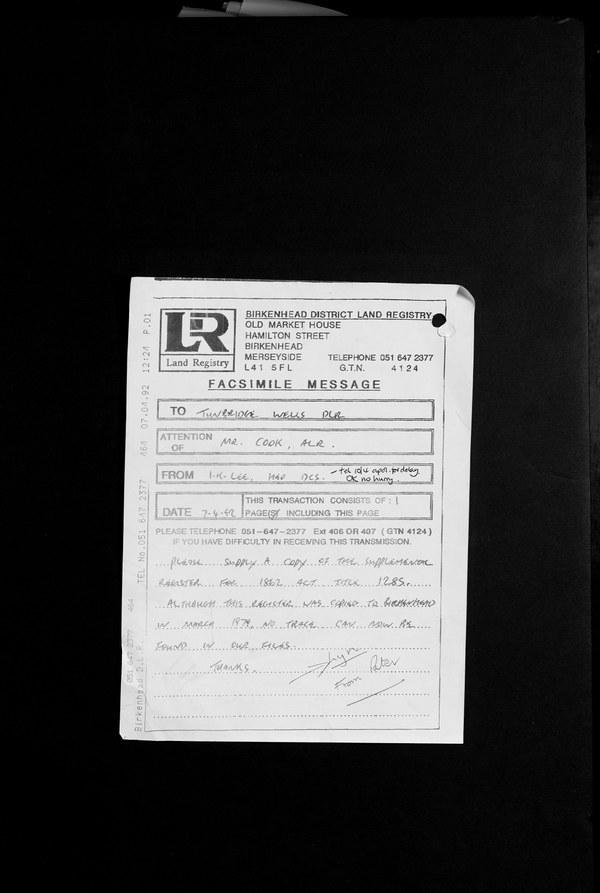 LR
Land Registry
BIRKENHEAD DISTRICT LAND REGISTRY
OLD MARKET HOUSE
HAMILTON STREET
BIRKENHEAD
MERSEYSIDE TELEPHONE 051 647 2377
L41 5FL G.T.N. 4124
FACSIMILE MESSAGE
TO TUNBRIDGE WELLS DLR
ATTENTION OF MR. COOK, ALR.
FROM I.K. LEE, HAO DCS. - tel 10/4 apol. for delay
OK no hurry.
DATE 7-4-92 THIS TRANSACTION CONSISTS OF: 1
PAGE(S) INCLUDING THIS PAGE
PLEASE TELEPHONE 051-647-2377 Ext 406 OR 407 (GTN 4124)
IF YOU HAVE DIFFICULTY IN RECEIVING THIS TRANSMISSION.
PLEASE SUPPLY A COPY OF THE SUPPLEMENTAL
REGISTER FOR 1862 ACT TITLE 1285.
ALTHOUGH THIS REGISTER WAS COPIED TO BIRKENHEAD
IN MARCH 1979, NO TRACE CAN NOW BE
FOUND IN OUR FILES.
THANKS.
From Peter
Birkenhead D.L.R. TEL No.051 647 2377 464 07.04.92 12:24 P.01
051 647 2377 464